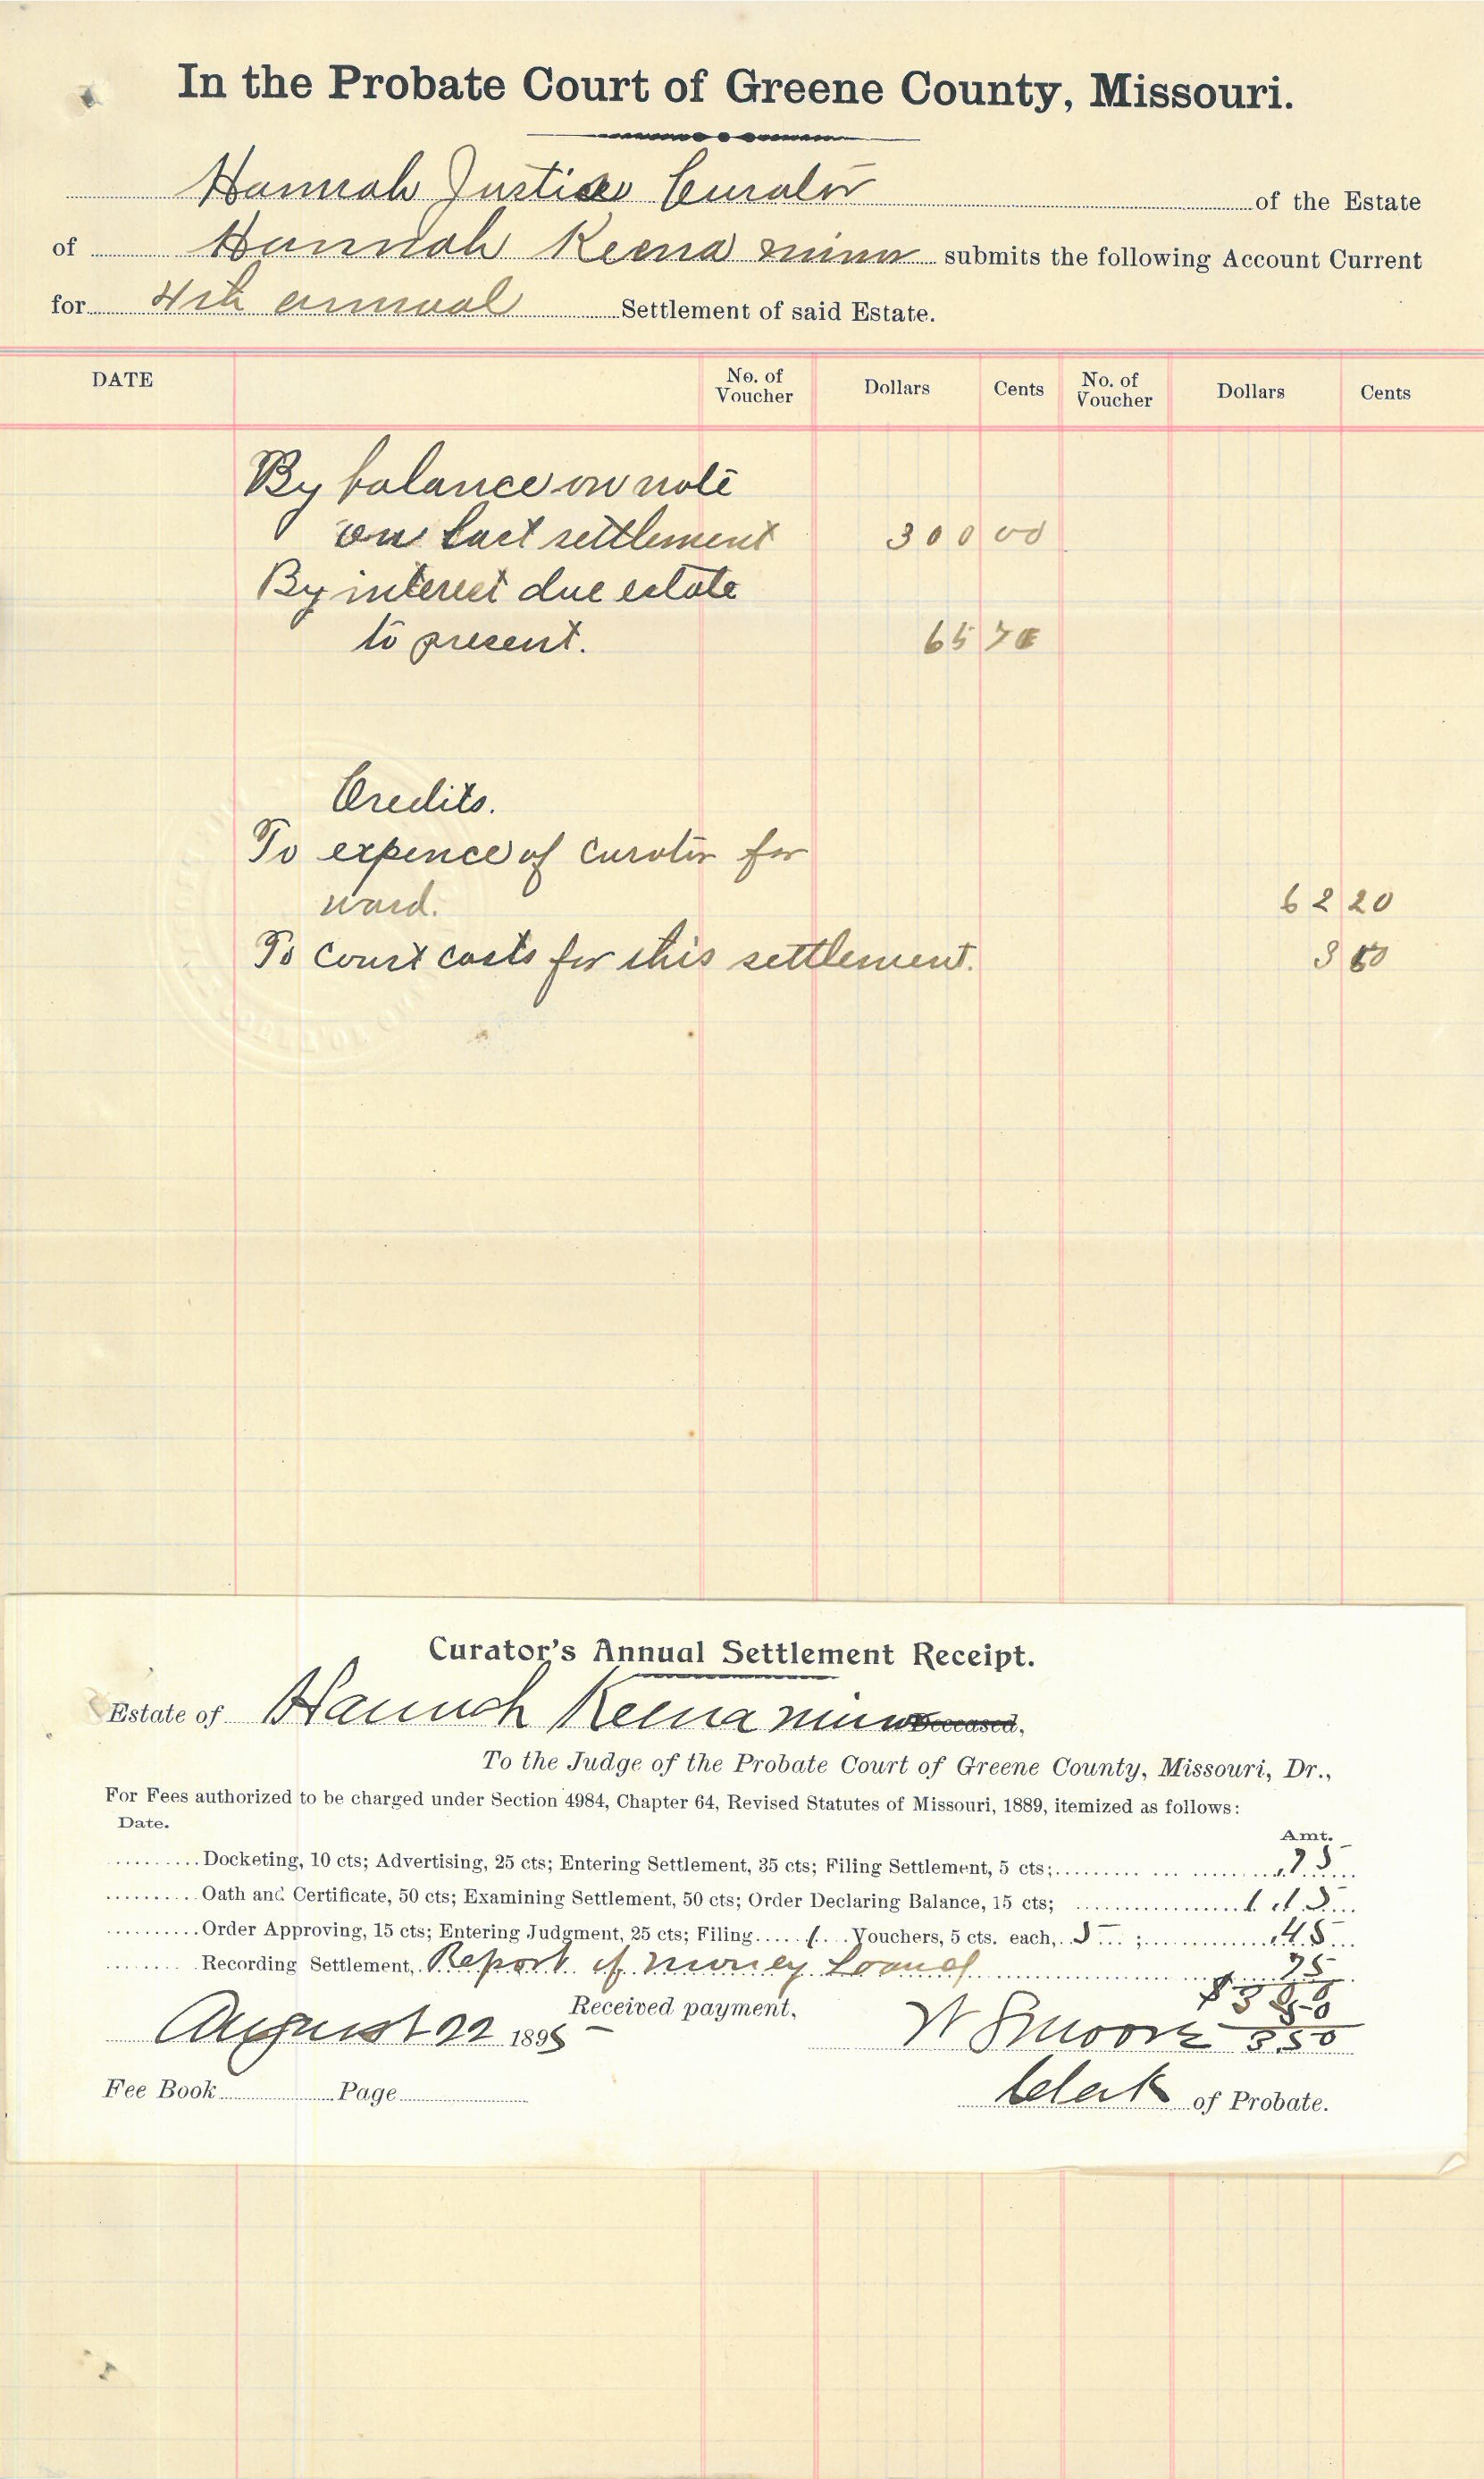 In the Probate Court of Greene County, Missouri.
Hannah Justice Curator of the Estate
of Hannah Keena minor submits the following Account Current
for 4th annual Settlement of said Estate.
DATE No. of Voucher Dollars Cents No. of Voucher Dollars Cents
By balance on note
on last settlement 300 00
By interest due estate
to present. 65 70
Credits.
To expence of curator for
ward. 62 20
To court costs for this settlement. 3 50
Curator's Annual Settlement Receipt.
Estate of Hannah Keena minor Deceased,
To the Judge of the Probate Court of Greene County, Missouri, Dr.,
For Fees authorized to be charged under Section 4984, Chapter 64, Revised Statutes of Missouri, 1889, itemized as follows:
Date.
Amt.
Docketing, 10 cts; Advertising, 25 cts; Entering Settlement, 35 cts; Filing Settlement, 5 cts; .75
Oath and Certificate, 50 cts; Examining Settlement, 50 cts; Order Declaring Balance, 15 cts; 1.15
Order Approving, 15 cts; Entering Judgment, 25 cts; Filing 1 Vouchers, 5 cts. each, 5 ; .45
Recording Settlement, Report of money Loaned 75
$3 00
Received payment, 50
August 22 1895 W S Moore 3.50
Fee Book Page Clerk of Probate.